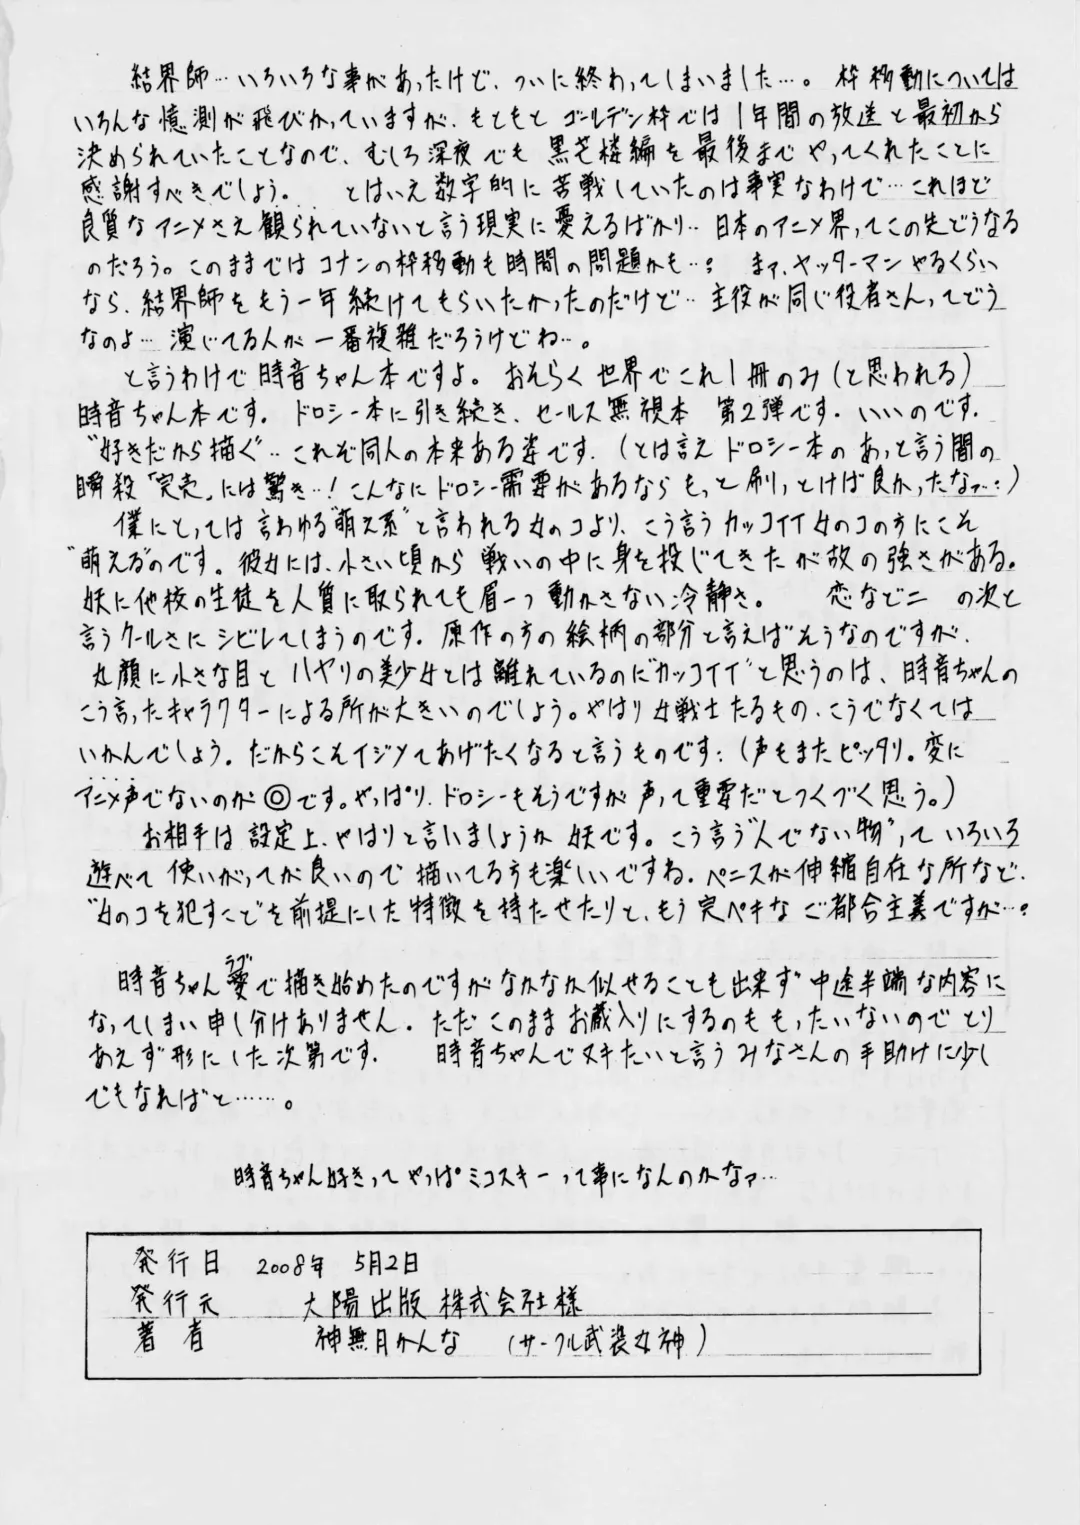 結界師…いろいろな事があったけど、ついに終わってしまいました…。枠移動については
いろんな憶測が飛びかっていますが、もともとゴールデン枠では1年間の放送と最初から
決められていたことなので、むしろ深夜でも黒芒楼編を最後までやってくれたことに
感謝すべきでしょう。 とはいえ数字的に苦戦していたのは事実なわけで…これほど
良質なアニメさえ観られていないと言う現実に憂えるばかり…日本のアニメ界ってこの先どうなる
のだろう。このままではコナンの枠移動も時間の問題かも…? まァ、ヤッターマンやるくらい
なら、結界師をもう一年続けてもらいたかったのだけど…主役が同じ役者さんってどう
なのよ…演じてる人が一番複雑だろうけどね…。
と言うわけで時音ちゃん本ですよ。おそらく世界でこれ1冊のみ(と思われる)
時音ちゃん本です。ドロシー本に引き続き、セールス無視本 第2弾です。いいのです。
"好きだから描く"…これぞ同人の本来ある姿です。(とは言えドロシー本のあっと言う間の
瞬殺「完売」には驚き…!こんなにドロシー需要があるならもっと刷っとけば良かったなァ…;)
僕にとっては言わゆる"萌え系"と言われる女のコより、こう言うカッコイイ女のコの方にこそ
"萌える"のです。彼女には、小さい頃から戦いの中に身を投じてきたが故の強さがある。
妖に他校の生徒を人質に取られても眉一つ動かさない冷静さ。 恋など二の次と
言うクールさにシビレてしまうのです。原作の方の絵柄の部分と言えばそうなのですが、
丸顔に小さな目とハヤリの美少女とは離れているのに"カッコイイ"と思うのは、時音ちゃんの
こう言ったキャラクターによる所が大きいのでしょう。やはり女戦士たるもの、こうでなくては
いかんでしょう。だからこそイジメてあげたくなると言うものです;(声もまたピッタリ。変に
アニメ声でないのが◎です。やっぱり、ドロシーもそうですが声って重要だとつくづく思う。)
お相手は設定上、やはりと言いましょうか妖です。こう言う"人でない物"っていろいろ
遊べて使いがってが良いので描いてる方も楽しいですね。ペニスが伸縮自在な所など、
"女のコを犯すこと"を前提にした特徴を持たせたりと、もう完ペキなご都合主義ですが…?
時音ちゃん愛(ラブ)で描き始めたのですがなかなか似せることも出来ず中途半端な内容に
なってしまい申し分けありません。ただこのままお蔵入りにするのももったいないのでとり
あえず形にした次第です。 時音ちゃんでヌキたいと言うみなさんの手助けに少し
でもなればと……。
時音ちゃん好きってやっぱミコスキーって事になんのかなァ…
発行日 2008年 5月2日
発行元 大陽出版株式会社様
著者 神無月かんな (サークル武装女神)